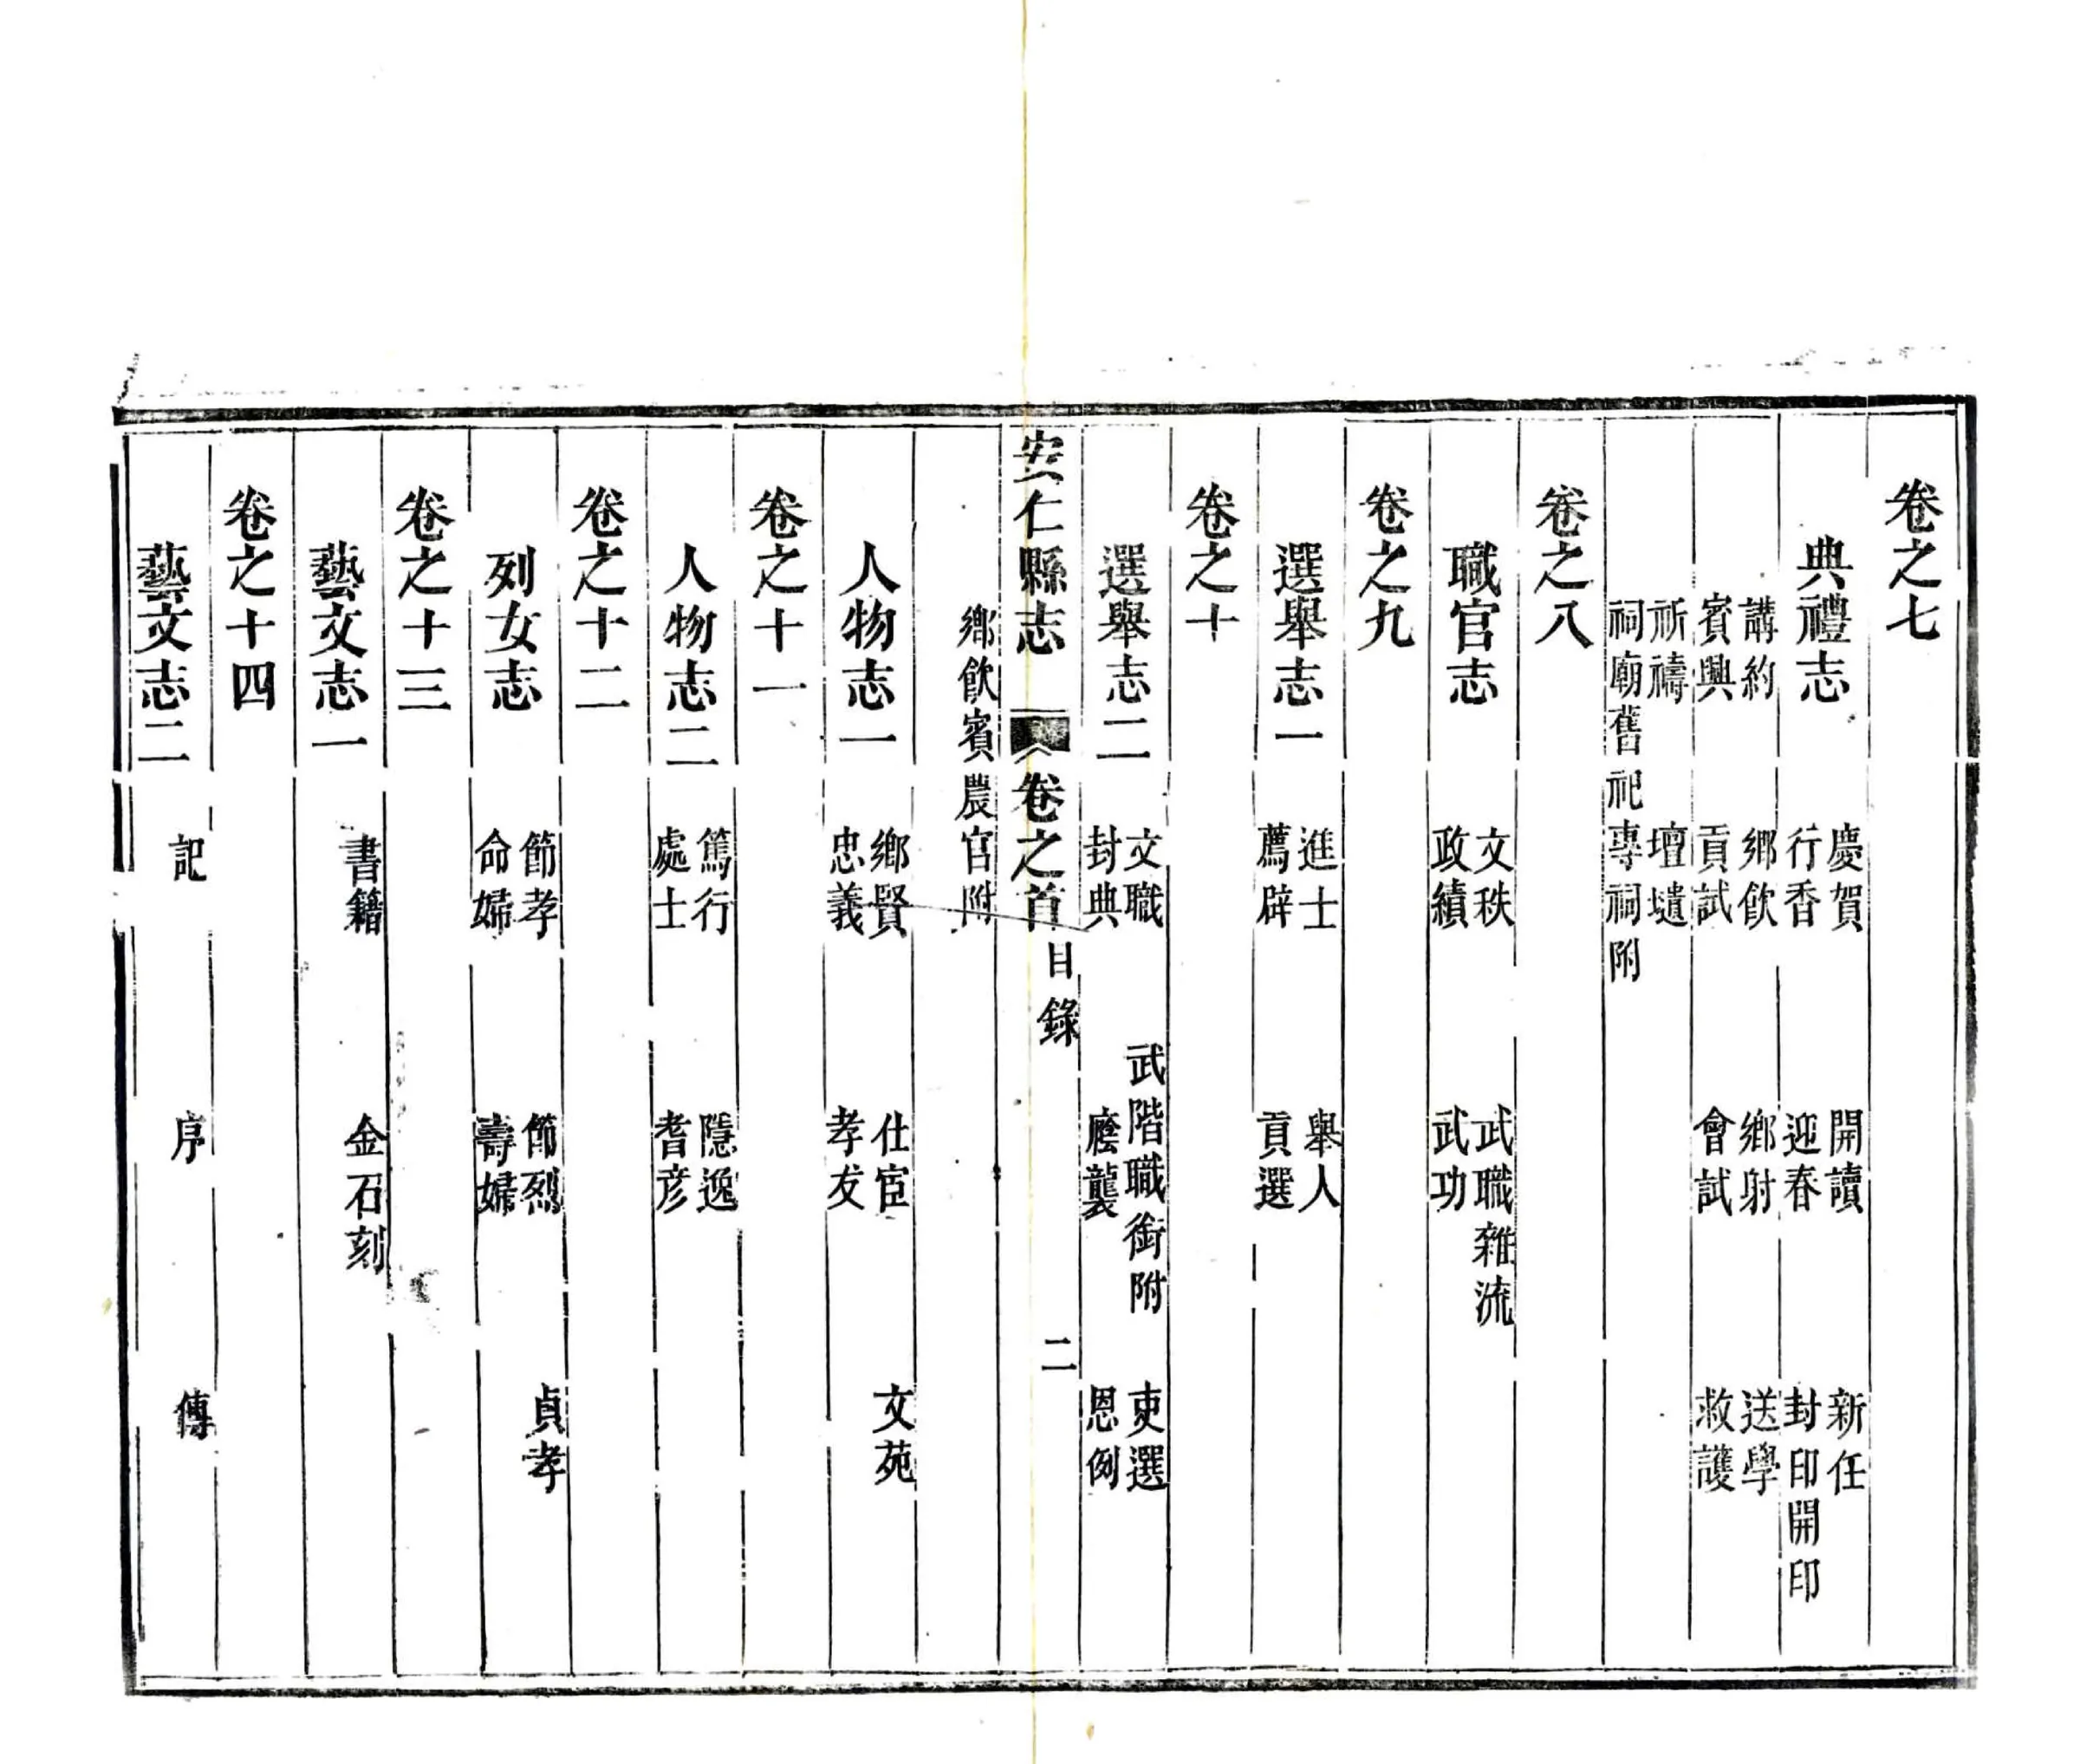 卷之七
典禮志
慶賀 開讀 新任
行香 迎春 封印開印
講約 鄉飲 鄉射 送學
賓興 貢試 會試 救護
祈禱 壇壝
祠廟舊祀專祠附
卷之八
職官志
文秩 武職雜流
政績 武功
卷之九
選舉志一
進士 舉人
薦辟 貢選
卷之十
選舉志二
文職 武階職銜附 吏選
封典 廕襲 恩例
安仁縣志 卷之首 目錄 二
鄉飲賓農官附
人物志一
鄉賢 仕宦 文苑
忠義 孝友
卷之十一
人物志二
篤行 隱逸
處士 耆彦
卷之十二
列女志
節孝 節烈 貞孝
命婦 壽婦
卷之十三
藝文志一
書籍 金石刻
卷之十四
藝文志二
記 序 傳